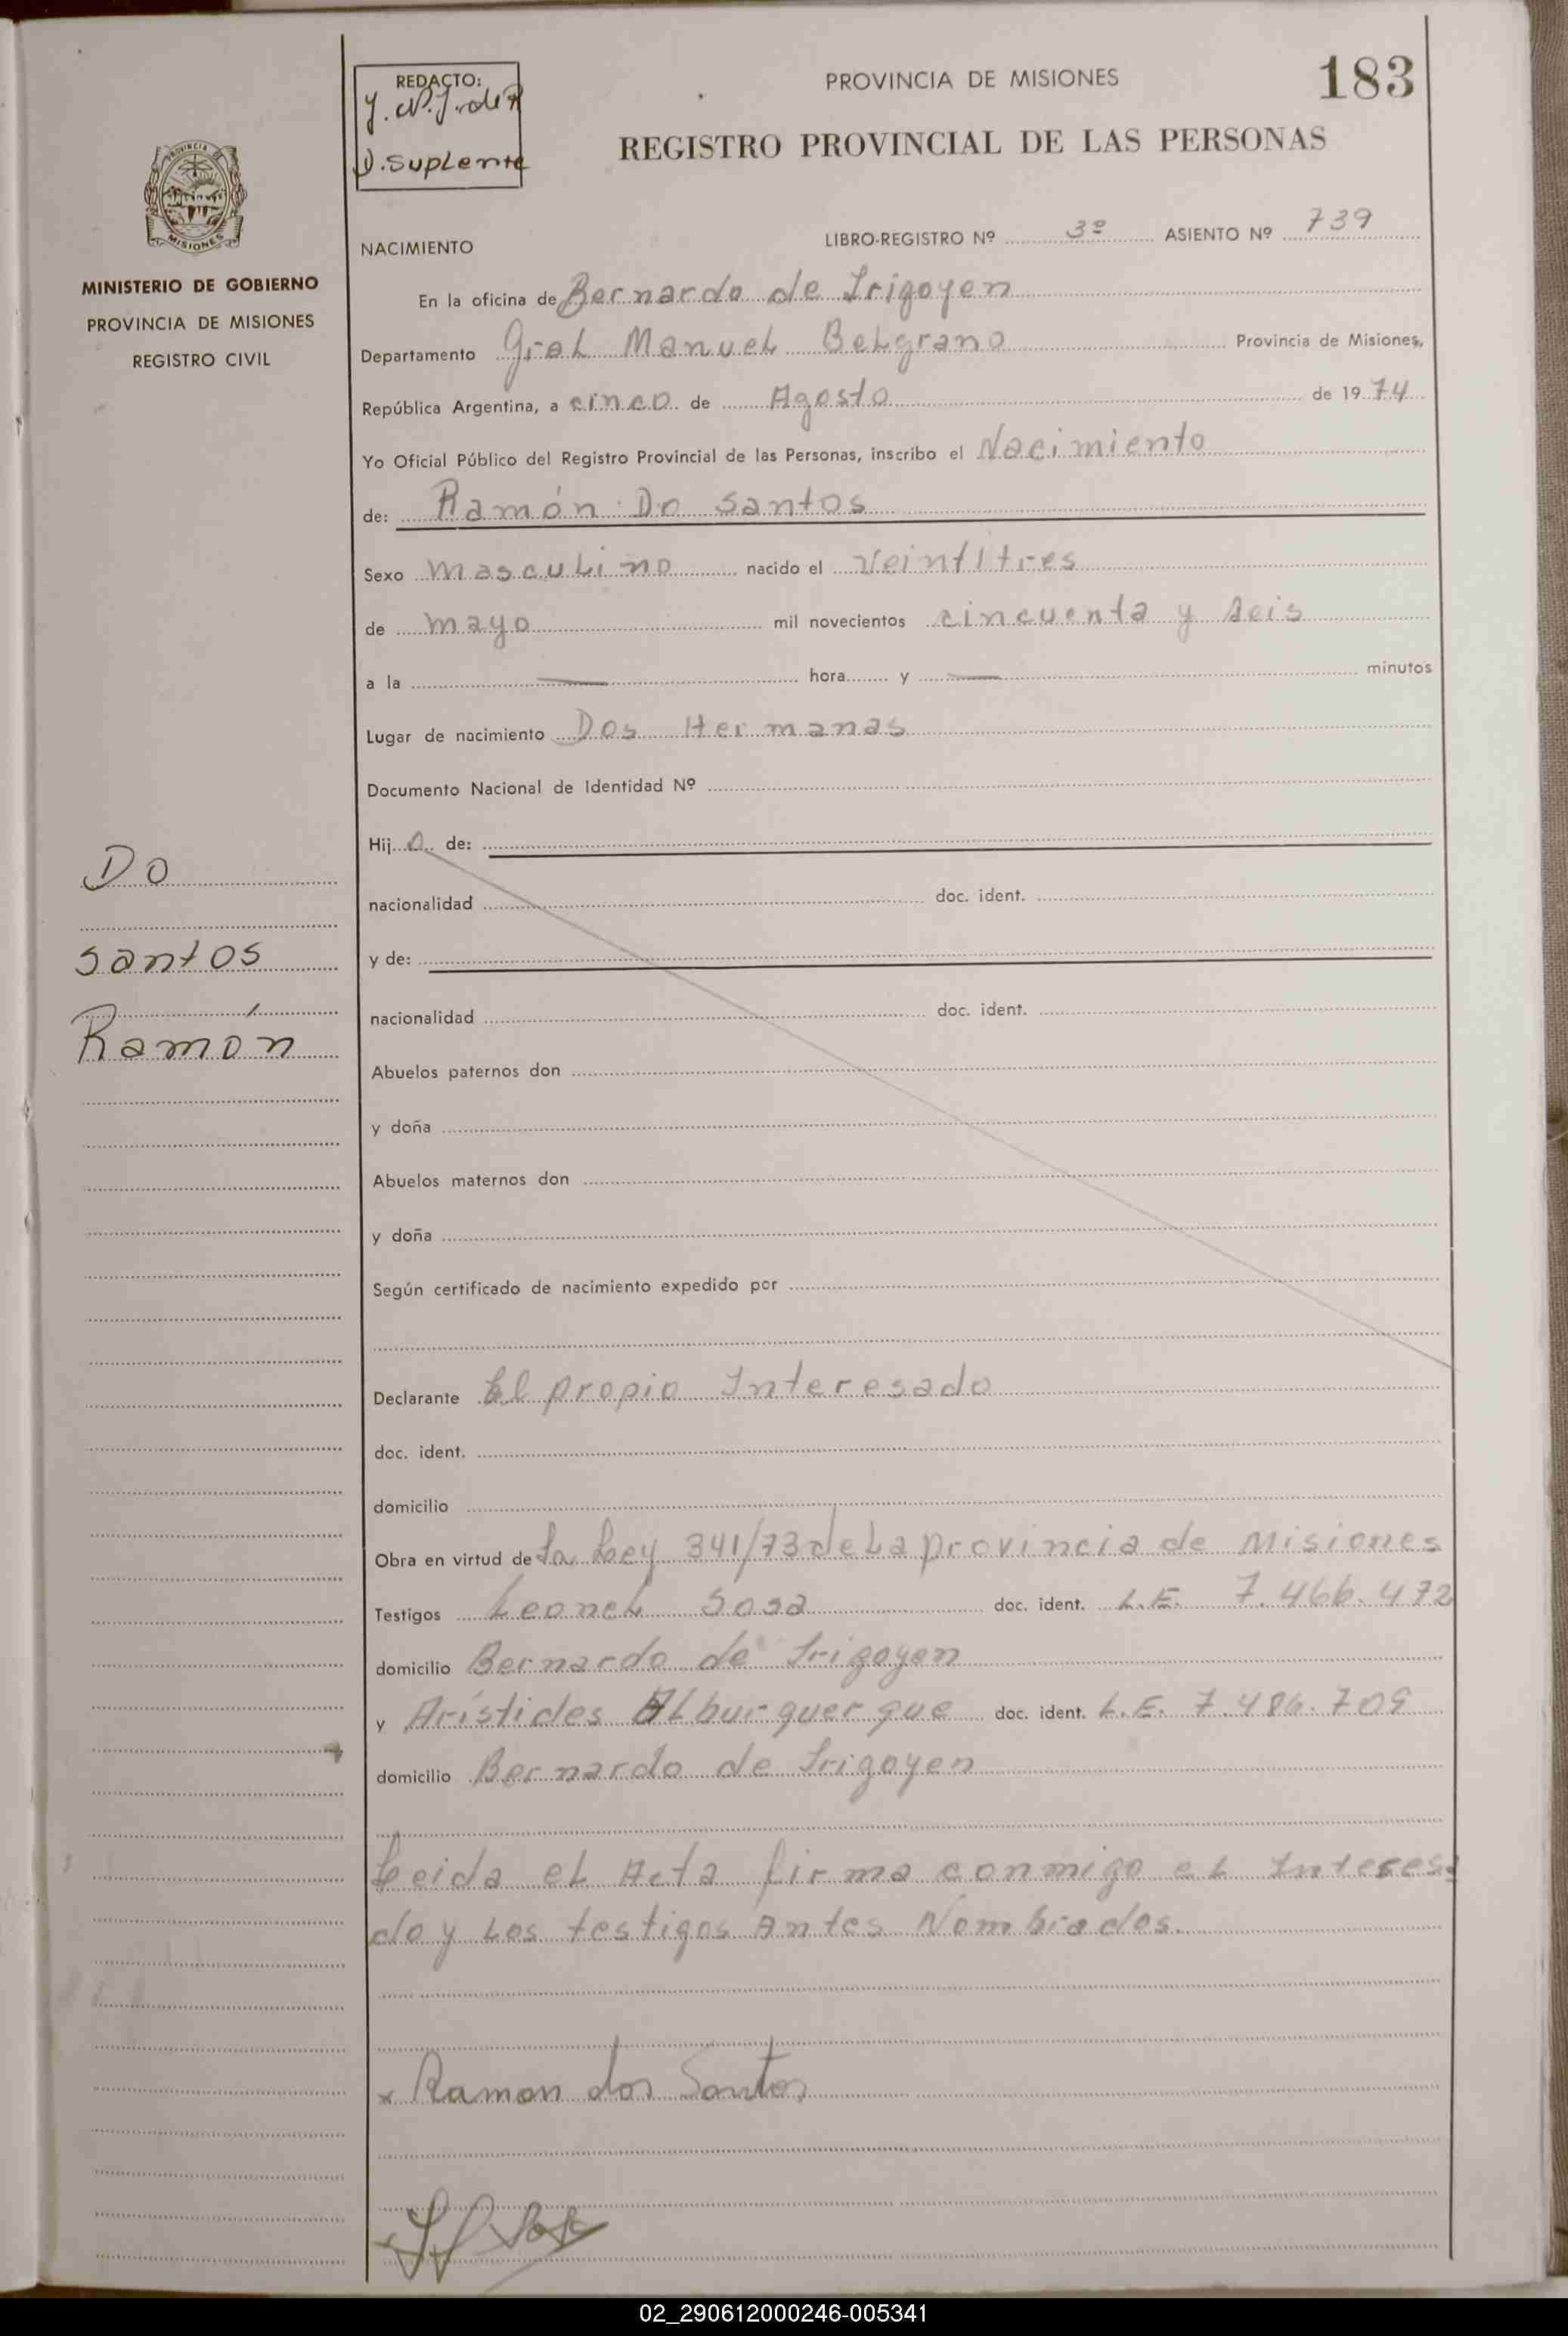 REDACTO:
D. Suplente
PROVINCIA DE MISIONES
183
REGISTRO PROVINCIAL DE LAS PERSONAS
PROVINCIA DE
MISIONES
MINISTERIO DE GOBIERNO
PROVINCIA DE MISIONES
REGISTRO CIVIL
NACIMIENTO
LIBRO-REGISTRO Nº 3º ASIENTO Nº 739
En la oficina de Bernardo de Irigoyen
Departamento Gral Manuel Belgrano Provincia de Misiones,
República Argentina, a cinco de Agosto de 1974
Yo Oficial Público del Registro Provincial de las Personas, inscribo el Nacimiento
de: Ramón Do Santos
Sexo masculino nacido el Veintitres
de mayo mil novecientos cincuenta y seis
a la — hora y — minutos
Lugar de nacimiento Dos Hermanas
Documento Nacional de Identidad Nº
Hijo de:
nacionalidad doc. ident.
y de:
nacionalidad doc. ident.
Abuelos paternos don
y doña
Abuelos maternos don
y doña
Según certificado de nacimiento expedido por
Do
santos
Ramón
Declarante El propio Interesado
doc. ident.
domicilio
Obra en virtud de la Ley 341/73 de La provincia de Misiones
Testigos Leonel Sosa doc. ident. L.E. 7.466.472
domicilio Bernardo de Irigoyen
y Arístides Alburquerque doc. ident. L.E. 7.486.709
domicilio Bernardo de Irigoyen
Leida el Acta firma conmigo el Interesa
do y Los testigos Antes Nombrados.
x Ramon dos Santos
02_290612000246-005341